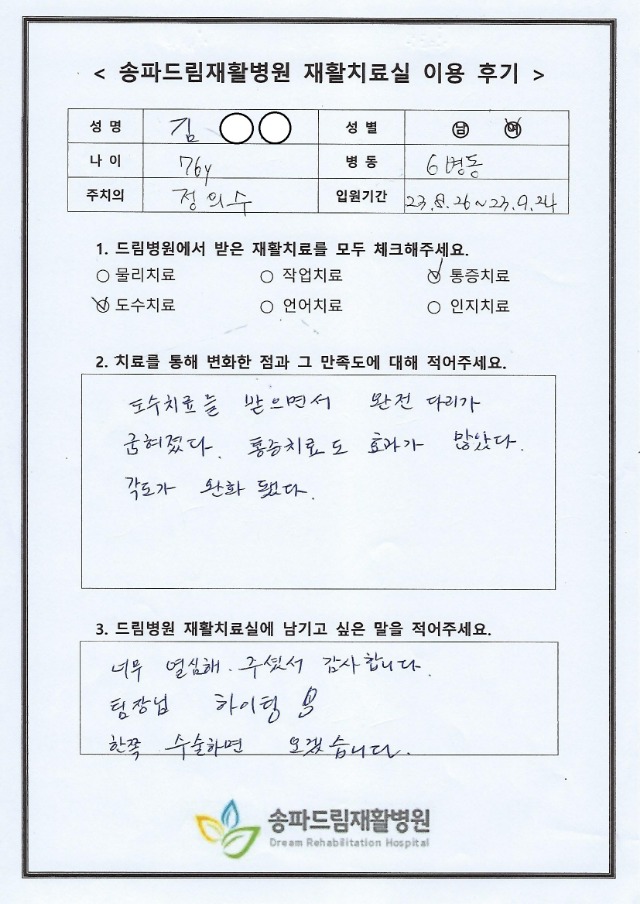 < 송파드림재활병원 재활치료실 이용 후기 >
성 명 김 성 별 남 여
나 이 76y 병 동 6병동
주치의 정의수 입원기간 23.8.26~23.9.24
1. 드림병원에서 받은 재활치료를 모두 체크해주세요.
물리치료 작업치료 통증치료
도수치료 언어치료 인지치료
2. 치료를 통해 변화한 점과 그 만족도에 대해 적어주세요.
도수치료를 받으면서 완전 다리가
굽혀졌다. 통증치료도 효과가 많았다.
각도가 완화 됐다.
3. 드림병원 재활치료실에 남기고 싶은 말을 적어주세요.
너무 열심해 주셨서 감사합니다.
팀장님 하이팅
한쪽 수술하면 오겠습니다.
송파드림재활병원
Dream Rehabilitation Hospital